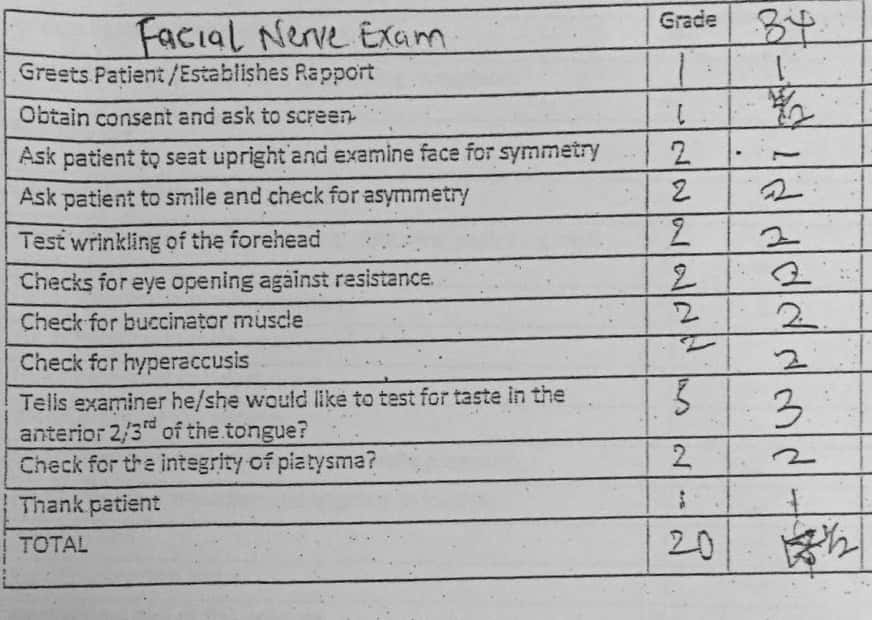 Facial Nerve Exam Grade 34
Greets Patient/Establishes Rapport 1 1
Obtain consent and ask to screen 1 ½
Ask patient to seat upright and examine face for symmetry 2 -
Ask patient to smile and check for asymmetry 2 2
Test wrinkling of the forehead 2 2
Checks for eye opening against resistance. 2 2
Check for buccinator muscle 2 2
Check for hyperaccusis 2 2
Tells examiner he/she would like to test for taste in the 3 3
anterior 2/3rd of the tongue?
Check for the integrity of platysma? 2 2
Thank patient 1 1
TOTAL 20